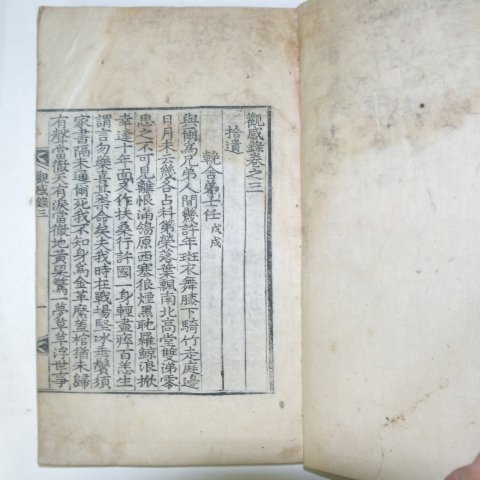 觀感錄卷之三
拾遺
輓舍弟士任 戊戌
與爾爲兄弟人間幾許年斑衣舞膝下騎竹走庭邊
日月未云幾各占科第榮落葉飄南北高堂雙涕零
思之不可見離恨滿鴒原西塞狼煙黑耽羅鯨浪掀
幸逢十年面又作扶桑行許國一身輕盡瘁百恙生
謂言勿藥喜其柰命矣夫我時在戰場堅冰垂鬢須
家書隔未通爾死我不知身爲金革縻蓋棺猶未歸
有聲當徹天有淚當徹地黃粱驚一夢草草浮世事
觀感錄三
一